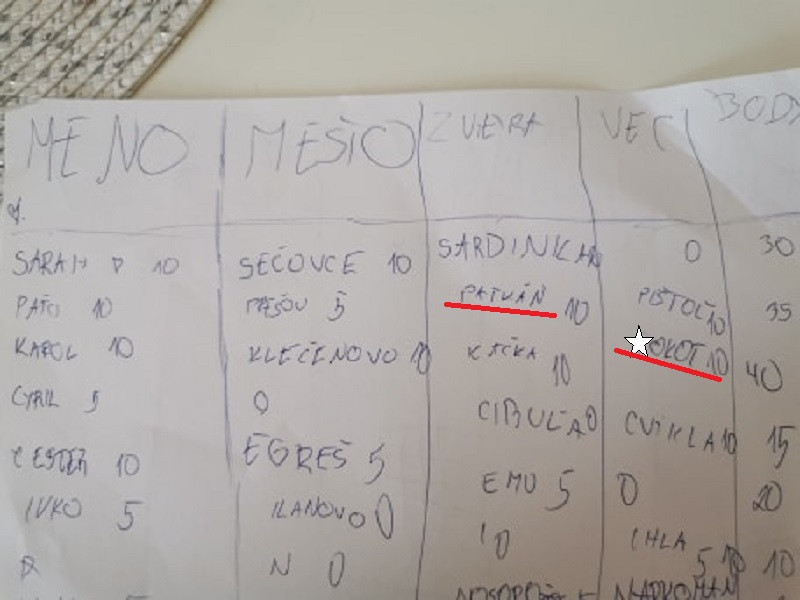 MENO MESTO ZVIERA VEC BODY
SARAH 10 SEČOVCE 10 SARDINKA 0 30
PAŤO 10 PREŠOV 5 PATKÁŇ 10 PIŠTOĽ 10 35
KAROL 10 KLEČENOVO 10 KAČKA 10 OKOT 10 40
CYRIL 5 0 CIBUĽA 0 CVIKLA 10 15
10 EGREŠ 5 EMU 5 0 20
IVKO 5 ILANOVO 0 I 0 IHLA 5 10 10
N 0